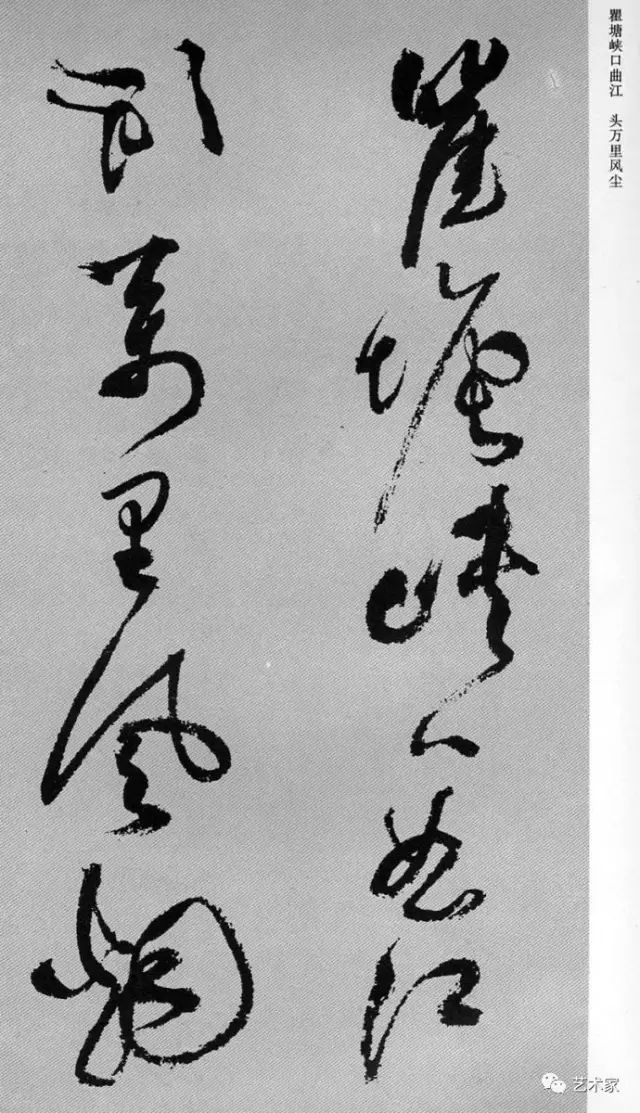 瞿塘峡口曲江 头万里风尘
瞿塘峽口曲江
頭萬里風烟
艺术家